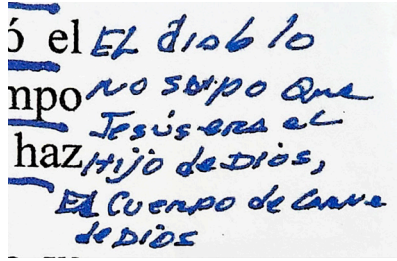 ó el EL diablo
mpo no supo que
Jesús era el
haz Hijo de Dios,
El Cuerpo de Carne
de Dios